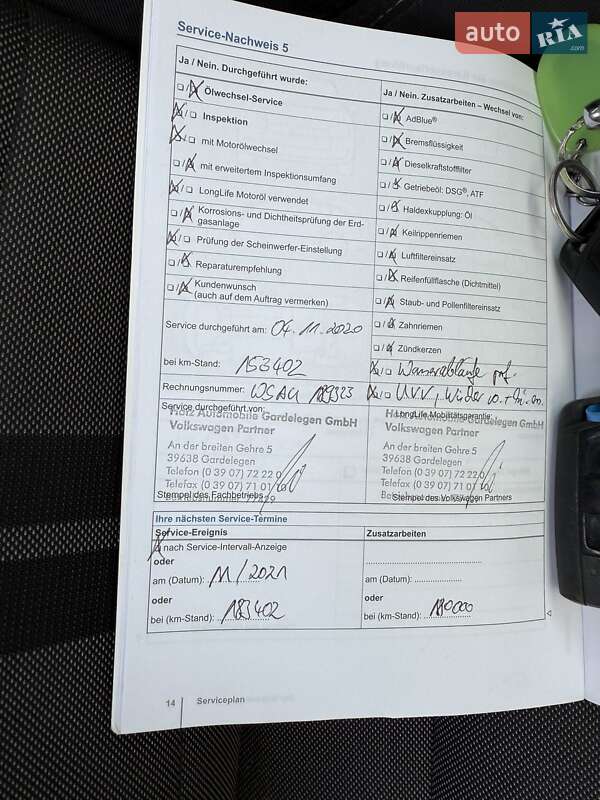 auto RIA .com
Service-Nachweis 5
Ja / Nein. Durchgeführt wurde:
Ölwechsel-Service
Inspektion
mit Motorölwechsel
mit erweitertem Inspektionsumfang
LongLife Motoröl verwendet
Korrosions- und Dichtheitsprüfung der Erd-
gasanlage
Prüfung der Scheinwerfer-Einstellung
Reparaturempfehlung
Kundenwunsch
(auch auf dem Auftrag vermerken)
Service durchgeführt am: 04.11.2020
bei km-Stand: 153402
Rechnungsnummer: WSAU
Service durchgeführt von:
Automobile Gardelegen GmbH
Volkswagen Partner
An der breiten Gehre 5
39638 Gardelegen
Telefon (0 39 07) 72 22 0
Telefax (0 39 07) 71 01
Stempel des Fachbetriebs
Ja / Nein. Zusatzarbeiten – Wechsel von:
AdBlue®
Bremsflüssigkeit
Dieselkraftstofffilter
Getriebeöl: DSG®, ATF
Haldexkupplung: Öl
Keilrippenriemen
Luftfiltereinsatz
Reifenfüllflasche (Dichtmittel)
Staub- und Pollenfiltereinsatz
Zahnriemen
Zündkerzen
Wasserabläufe
UVV,
LongLife Mobilitätsgarantie:
Automobile Gardelegen GmbH
Volkswagen Partner
An der breiten Gehre 5
39638 Gardelegen
Telefon (0 39 07) 72 22 0
Telefax (0 39 07) 71 01
Stempel des Volkswagen Partners
Ihre nächsten Service-Termine
Service-Ereignis
nach Service-Intervall-Anzeige
oder
am (Datum): 11/2021
oder
bei (km-Stand): 183402
Zusatzarbeiten
am (Datum):
oder
bei (km-Stand):
14 Serviceplan